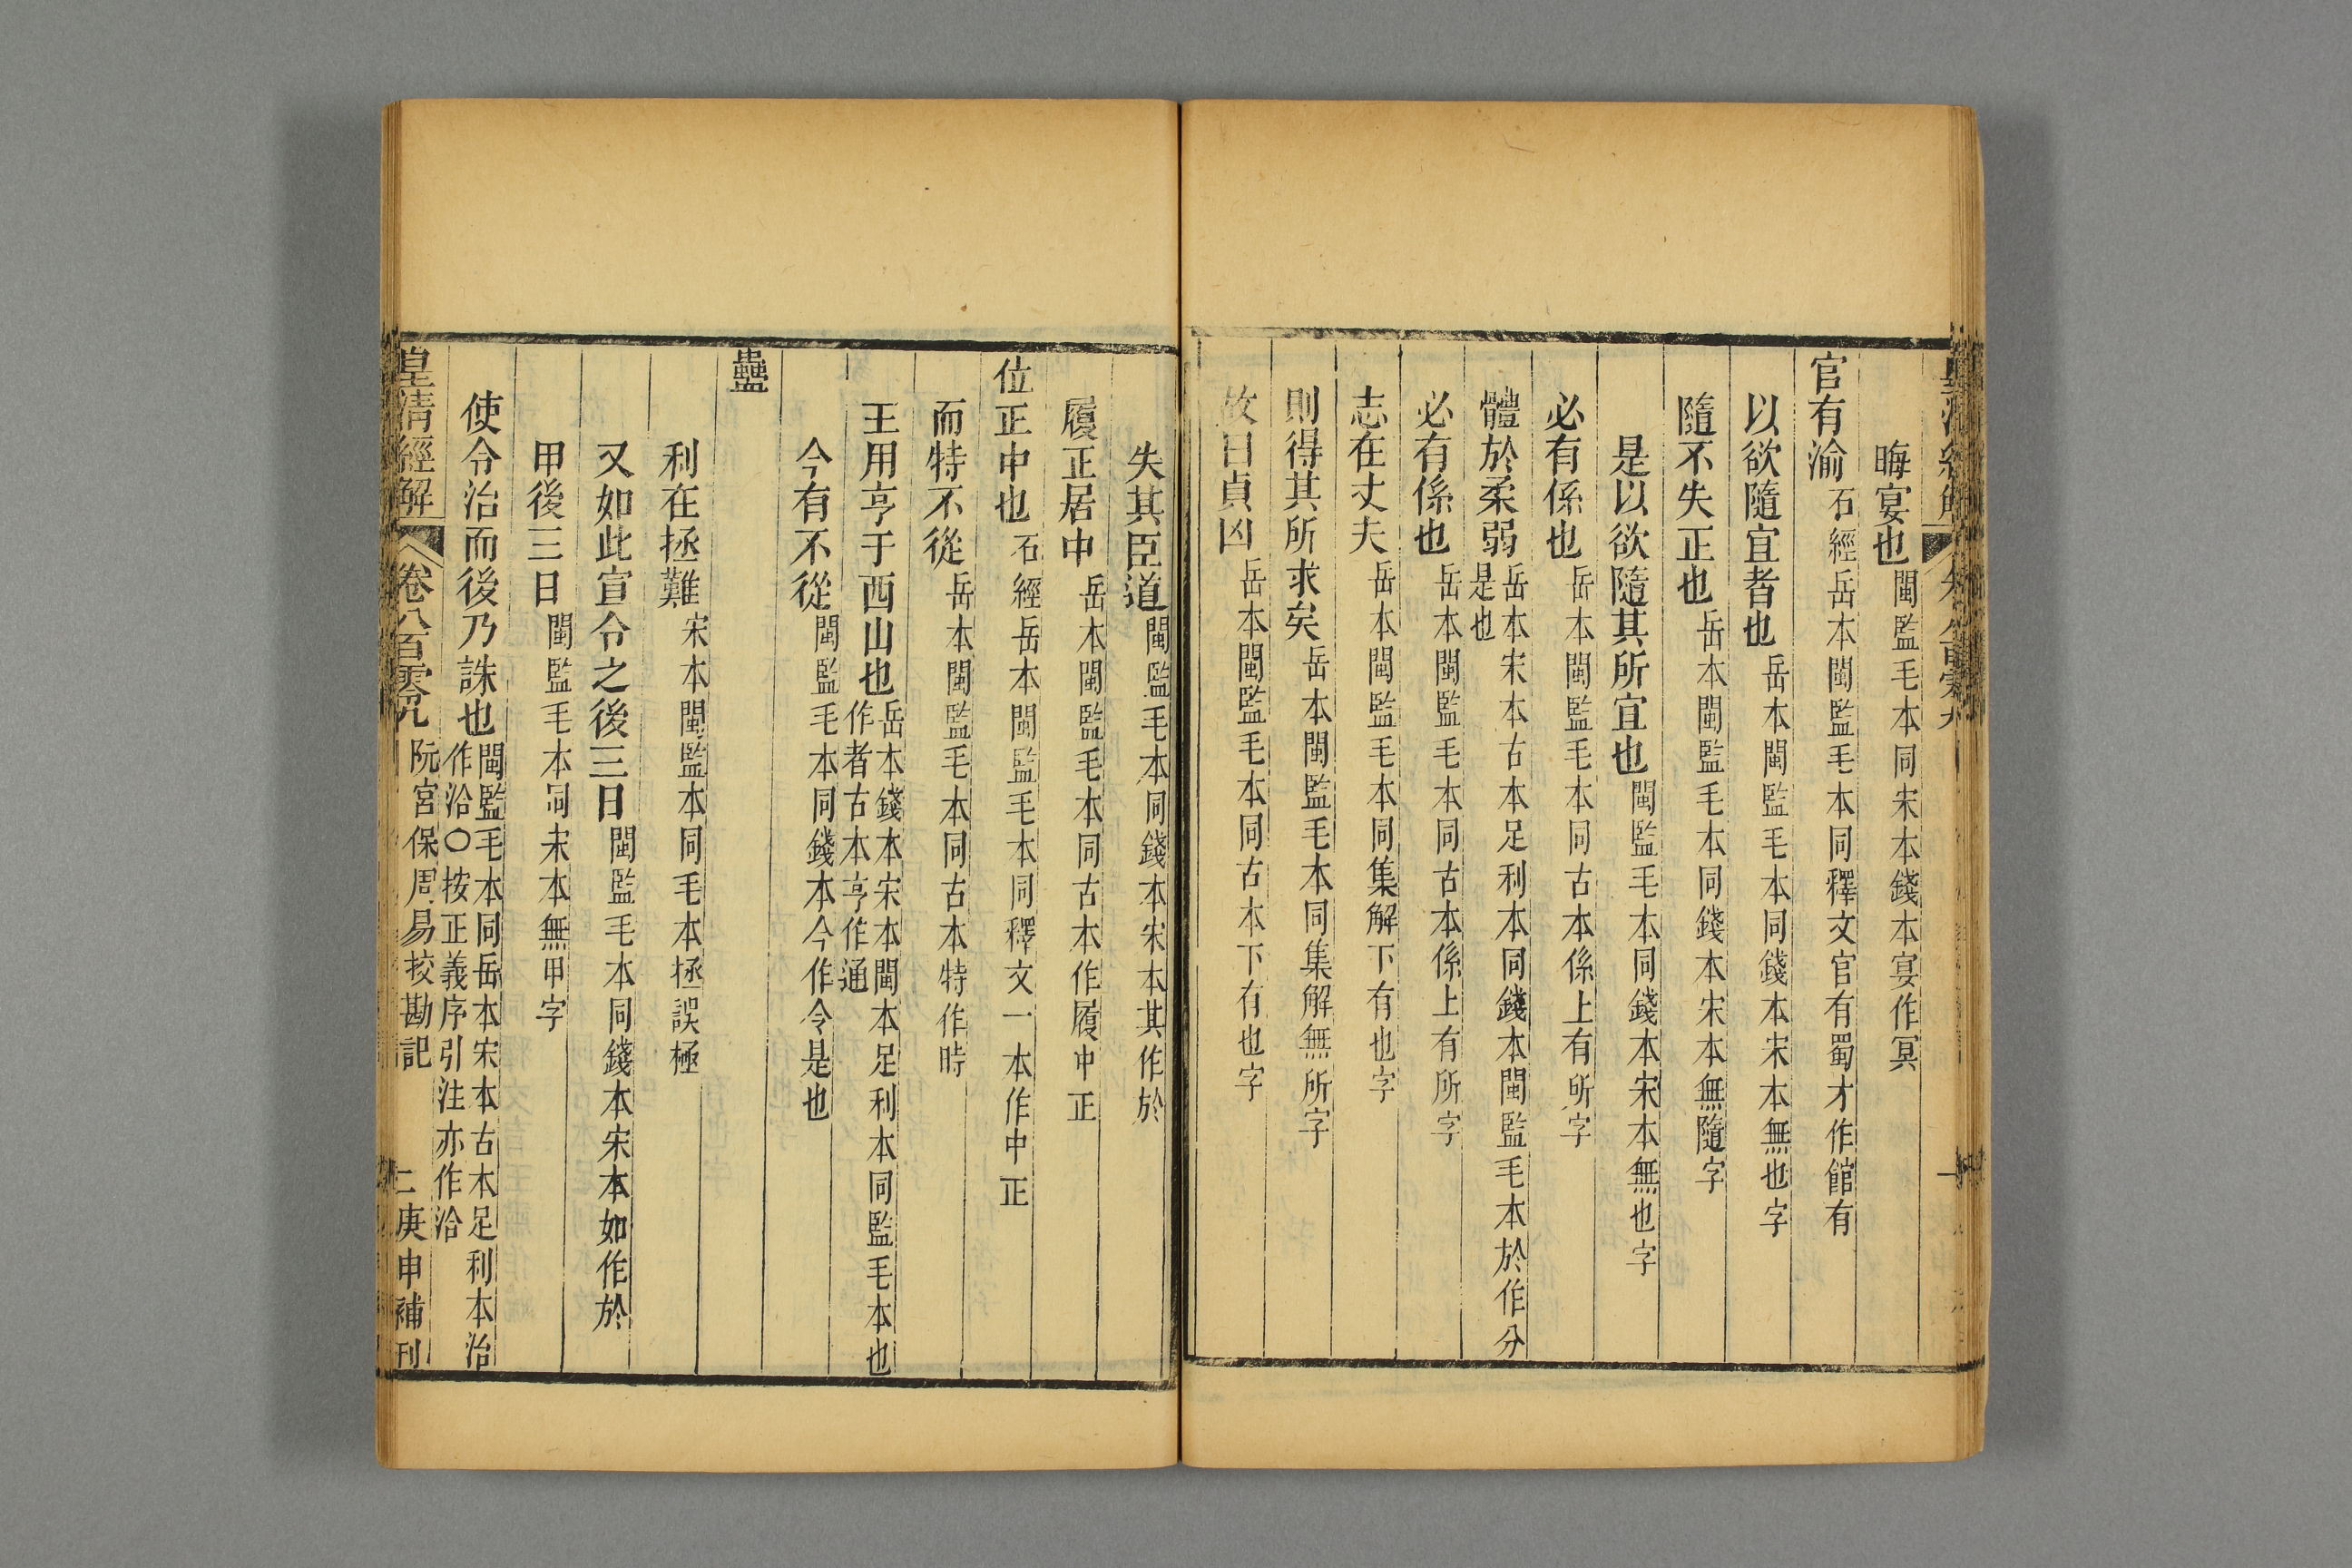 晦宴也閩監毛本同宋本錢本宴作冥
官有渝石經岳本閩監毛本同釋文官有蜀才作館有
以欲隨宜者也岳本閩監毛本同錢本宋本無也字
隨不失正也岳本閩監毛本同錢本宋本無隨字
是以欲隨其所宜也閩監毛本同錢本宋本無也字
必有係也岳本閩監毛本同古本係上有所字
體於柔弱岳本宋本古本足利本同錢本閩監毛本於作分
是也
必有係也岳本閩監毛本同古本係上有所字
志在丈夫岳本閩監毛本同集解下有也字
則得其所求矣岳本閩監毛本同集解無所字
故曰貞凶岳本閩監毛本同古本下有也字
失其臣道閩監毛本同錢本宋本其作於
履正居中岳本閩監毛本同古本作履中正
位正中也石經岳本閩監毛本同釋文一本作中正
而特不從岳本閩監毛本同古本特作時
王用亨于西山也岳本錢本宋本閩本足利本同監毛本也
作者古本亨作通
今有不從閩監毛本同錢本今作令是也
蠱
利在拯難宋本閩監本同毛本拯誤極
又如此宣令之後三日閩監毛本同錢本宋本如作於
甲後三日閩監毛本同宋本無甲字
使令治而後乃誅也閩監毛本同岳本宋本古本足利本治
作洽○按正義序引注亦作洽
皇清經解 卷八百零九 阮宮保周易挍勘記 二 庚申補刊